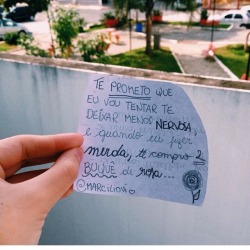 TE PROMETO QUE
EU VOU TENTAR TE
DEIXAR MENOS NERVOSA,
e quando eu fizer
merda, te compro 2
BUQUÊ de rosa...
@MARCILIOVI